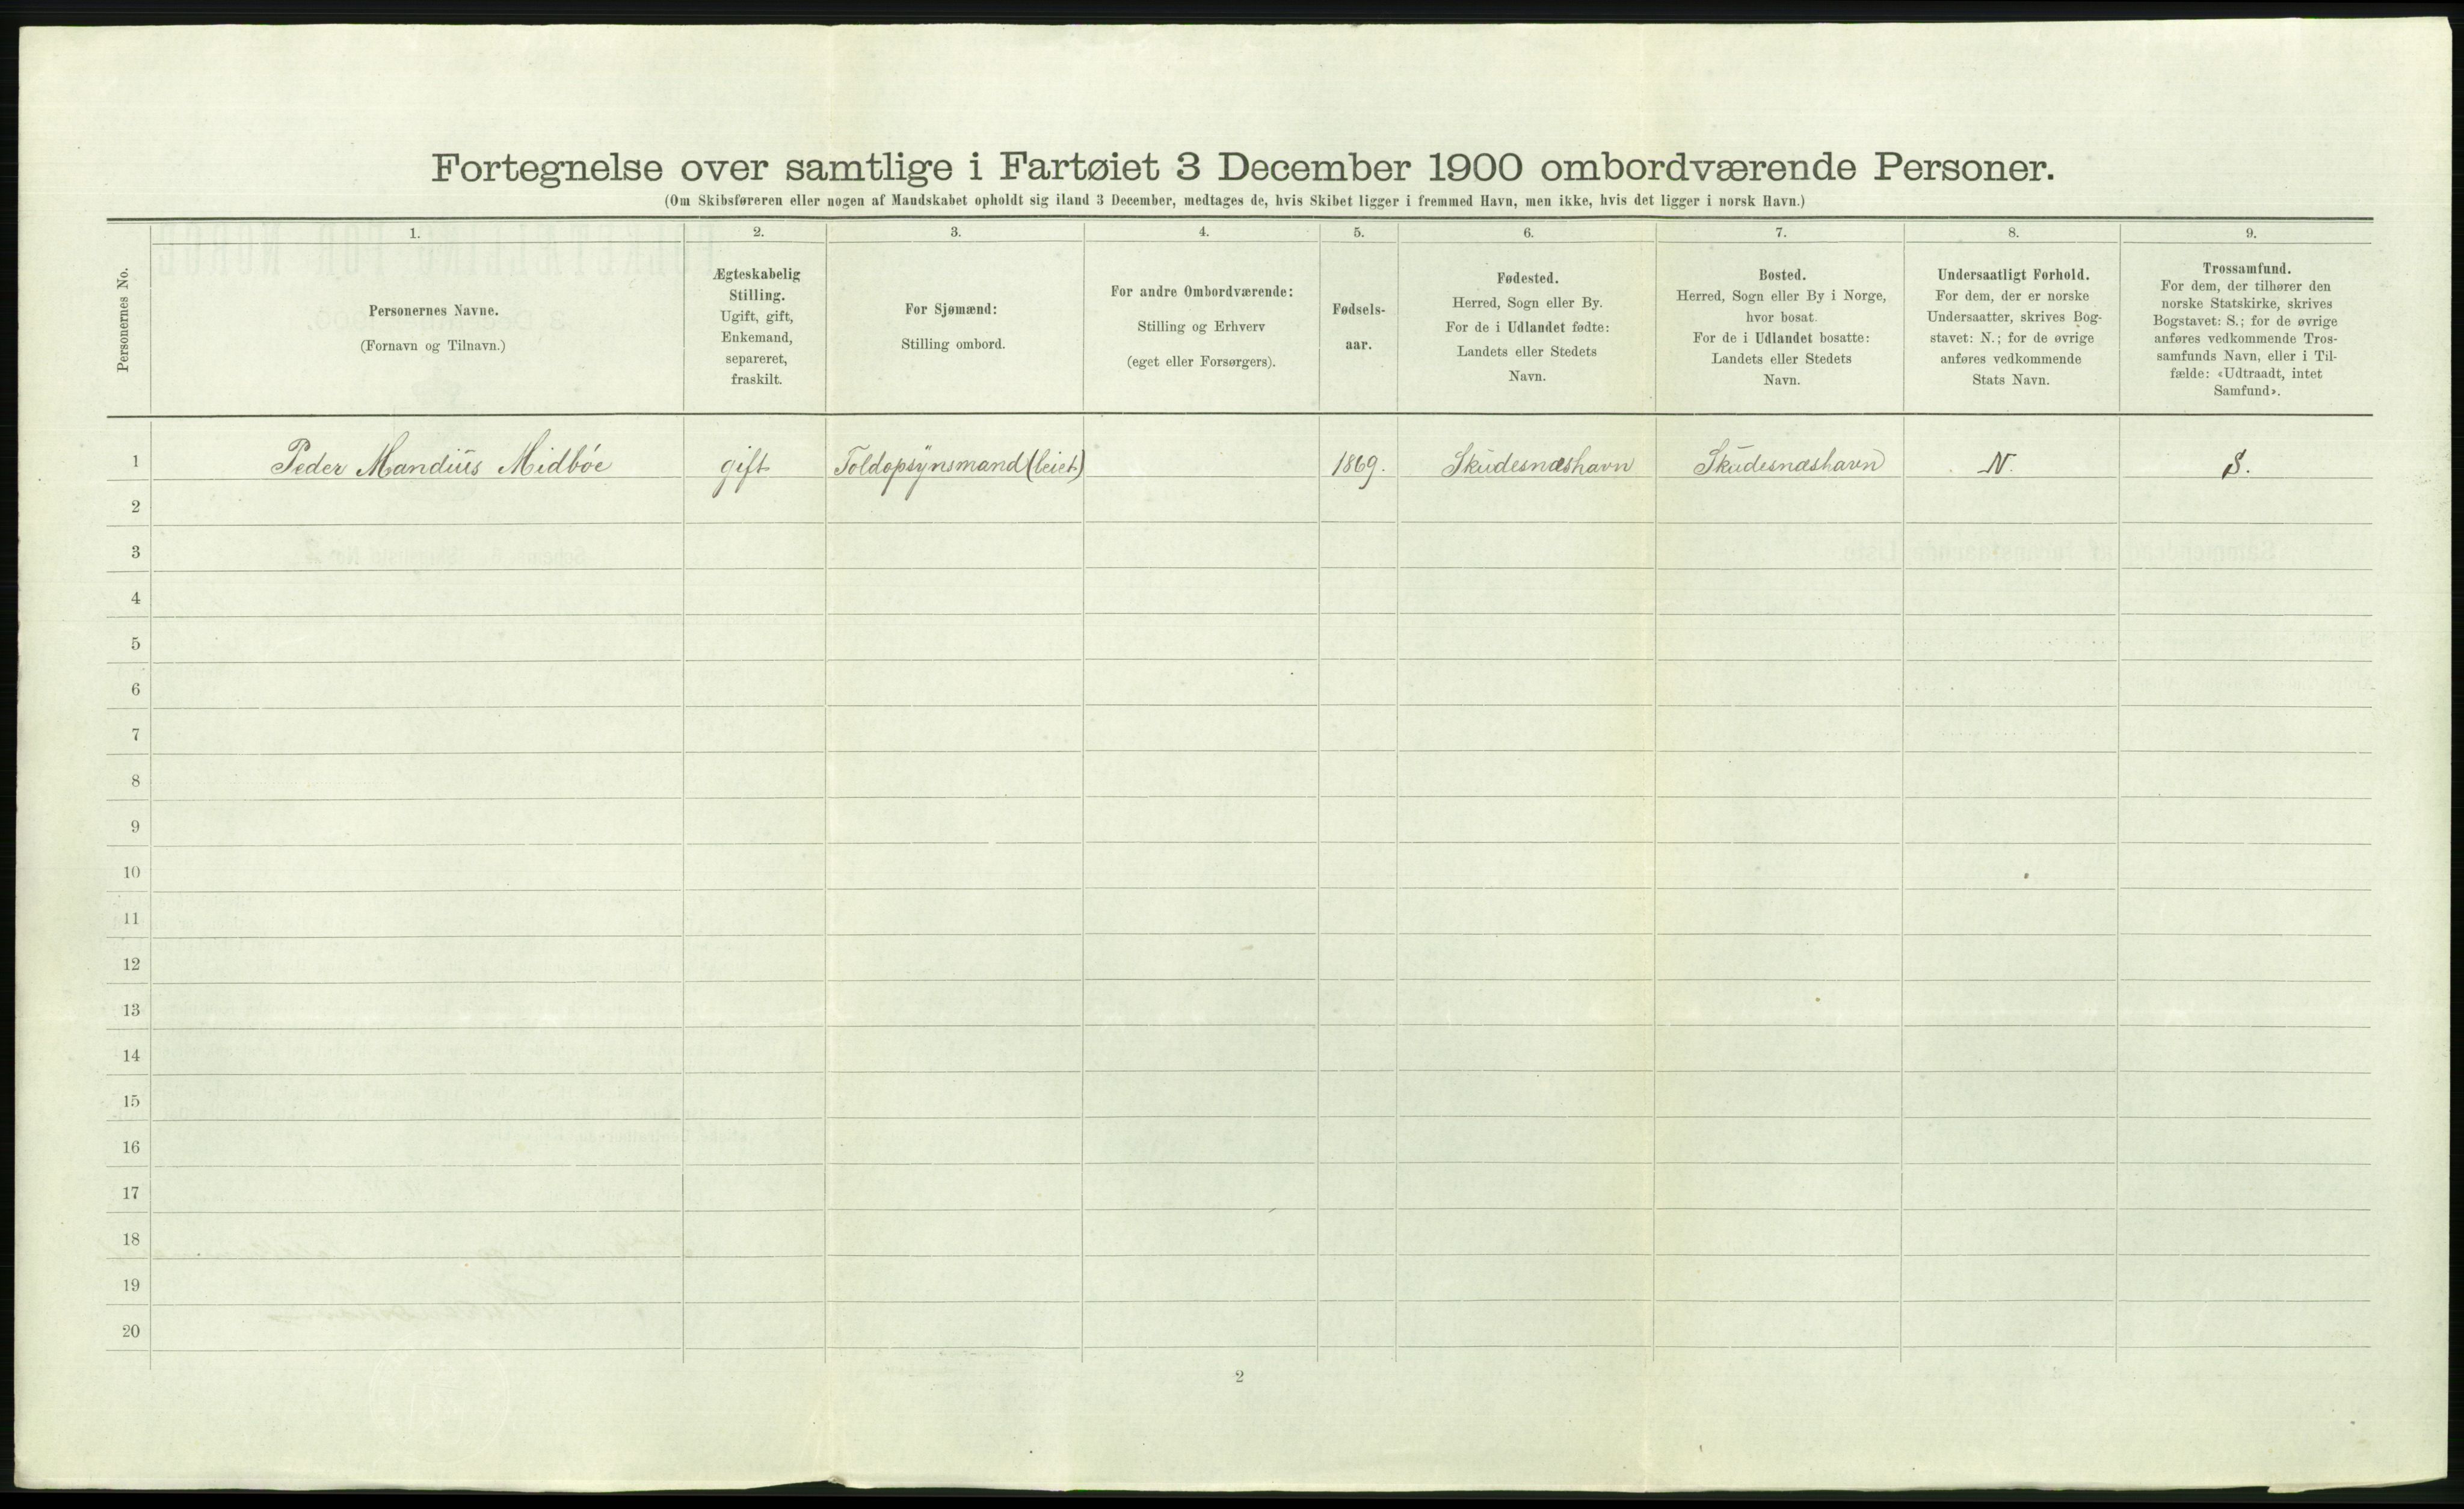 Fortegnelse over samtlige i Fartøiet 3 December 1900 ombordværende Personer.
(Om Skibsføreren eller nogen af Mandskabet opholdt sig iland 3 December, medtages de, hvis Skibet ligger i fremmed Havn, men ikke, hvis det ligger i norsk Havn.)
Personernes No.
1.
Personernes Navne.
(Fornavn og Tilnavn.)
2.
Ægteskabelig
Stilling.
Ugift, gift,
Enkemand,
separeret,
fraskilt.
3.
For Sjømænd:
Stilling ombord.
4.
For andre Ombordværende:
Stilling og Erhverv
(eget eller Forsørgers).
5.
Fødsels-
aar.
6.
Fødested.
Herred, Sogn eller By.
For de i Udlandet fødte:
Landets eller Stedets
Navn.
7.
Bosted.
Herred, Sogn eller By i Norge,
hvor bosat.
For de i Udlandet bosatte:
Landets eller Stedets
Navn.
8.
Undersaatligt Forhold.
For dem, der er norske
Undersaatter, skrives Bog-
stavet: N.; for de øvrige
anføres vedkommende
Stats Navn.
9.
Trossamfund.
For dem, der tilhører den
norske Statskirke, skrives
Bogstavet: S.; for de øvrige
anføres vedkommende Tros-
samfunds Navn, eller i Til-
fælde: «Udtraadt, intet
Samfund».
1 Peder Mandius Midbøe gift Toldopsynsmand (leiet) 1869. Skudesnæshavn Skudesnæshavn N. S.
2
3
4
5
6
7
8
9
10
11
12
13
14
15
16
17
18
19
20
2